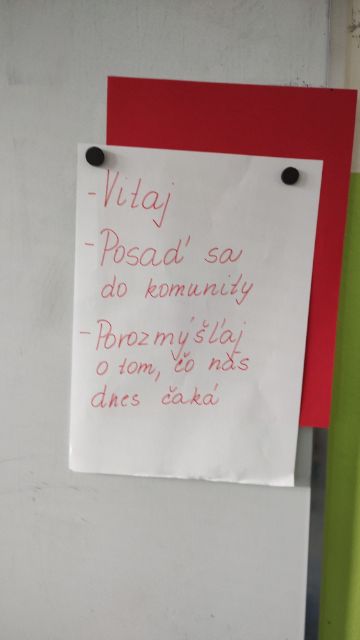 - Vitaj
- Posaď sa
do komunity
- Porozmýšľaj
o tom, čo nás
dnes čaká